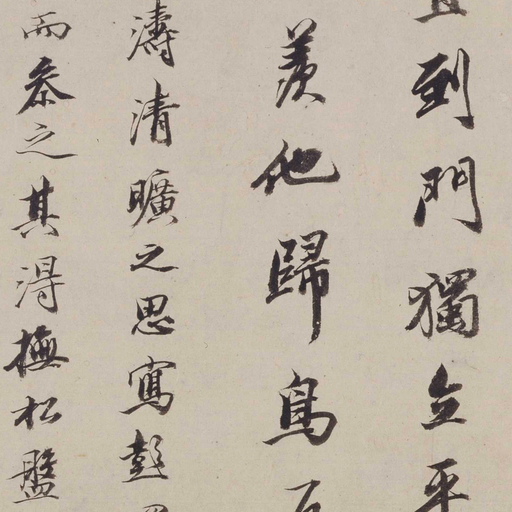 到門獨立平
羨他歸鳥
濤清曠之思寫彭
而參之其得撫松盤